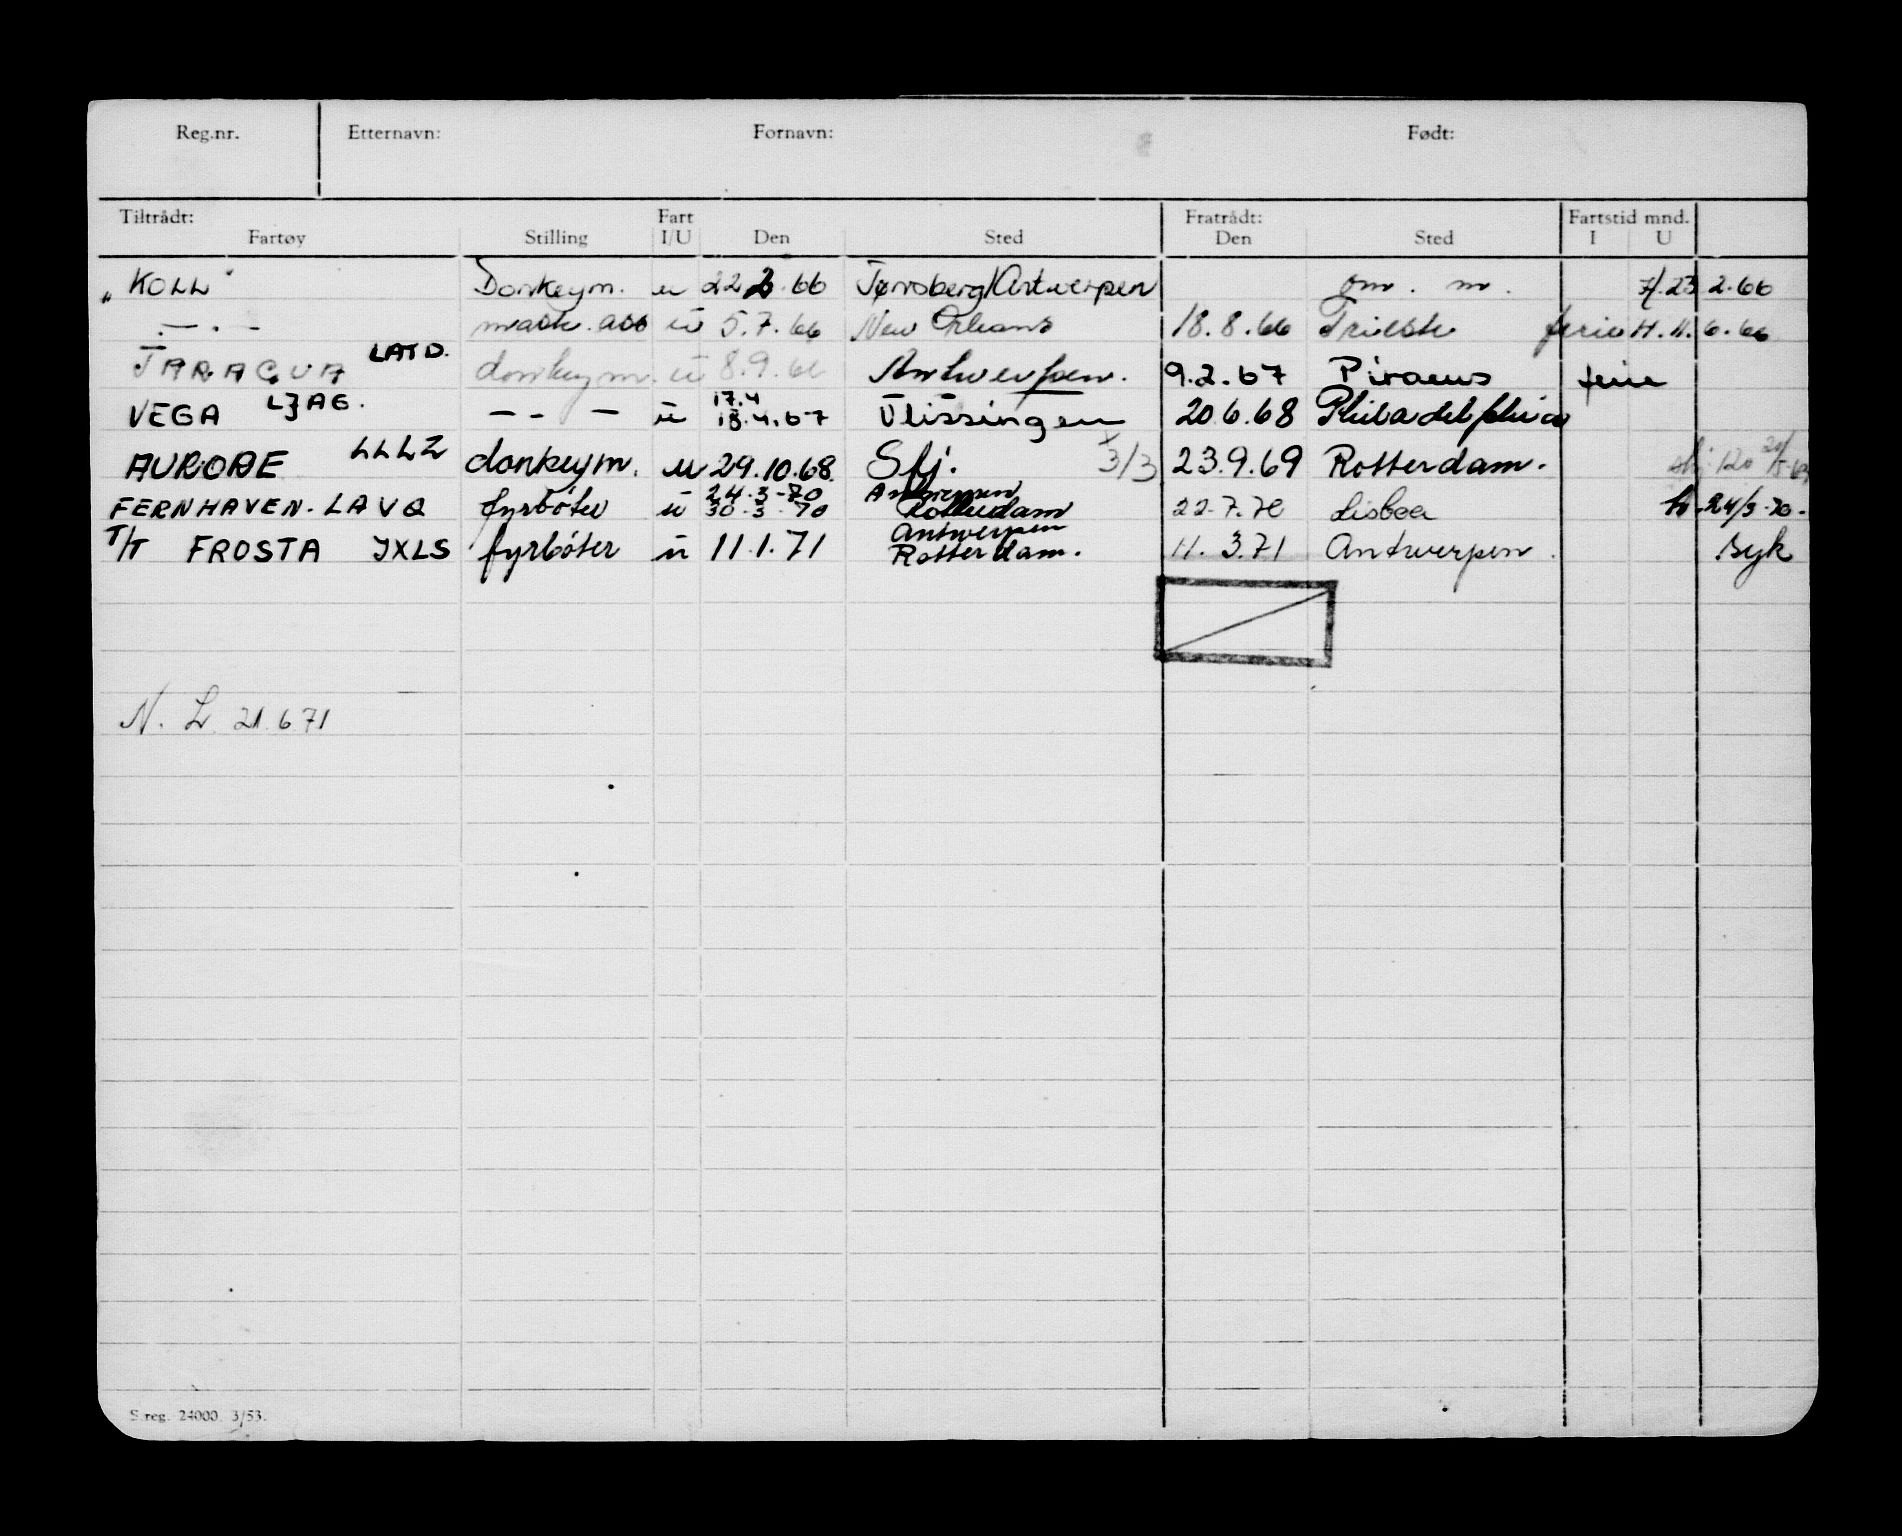 Reg.nr. Etternavn: Fornavn: Født:
Tiltrådt: Fart Fratrådt: Fartstid mnd.
Fartøy Stilling I/U Den Sted Den Sted I U
„KOLL" Donkeym. u 22.2.66 Tønsberg/Antwerpen om. m. 7/.23 2.66
— . — mask. ass ū 5.7.66 New Orleans 18.8.66 Trieste ferie H. 11. 6.66
TARAGUA LATD. donkeym. ū 8.9.66 Antwerpen. 9.2.67 Piraeus ferie
17.4
VEGA LJAG. — - — ū 18.4.67 Vlissingen 20.6.68 Philadelphia
AURORE LLLZ donkeym. u 29.10.68. Sfj. 3/3 23.9.69 Rotterdam.
24.3-70 Antwerpen
FERNHAVEN. LAVQ fyrbøter ū 30.3.-70 Rotterdam 22.7.70 Lisboa 24/3-70.
Antwerpen
T/T FROSTA JXLS fyrbøter ū 11.1.71 Rotterdam. 11.3.71 Antwerpen. syk
N. L 21.6.71
S.reg. 24000. 3/53.